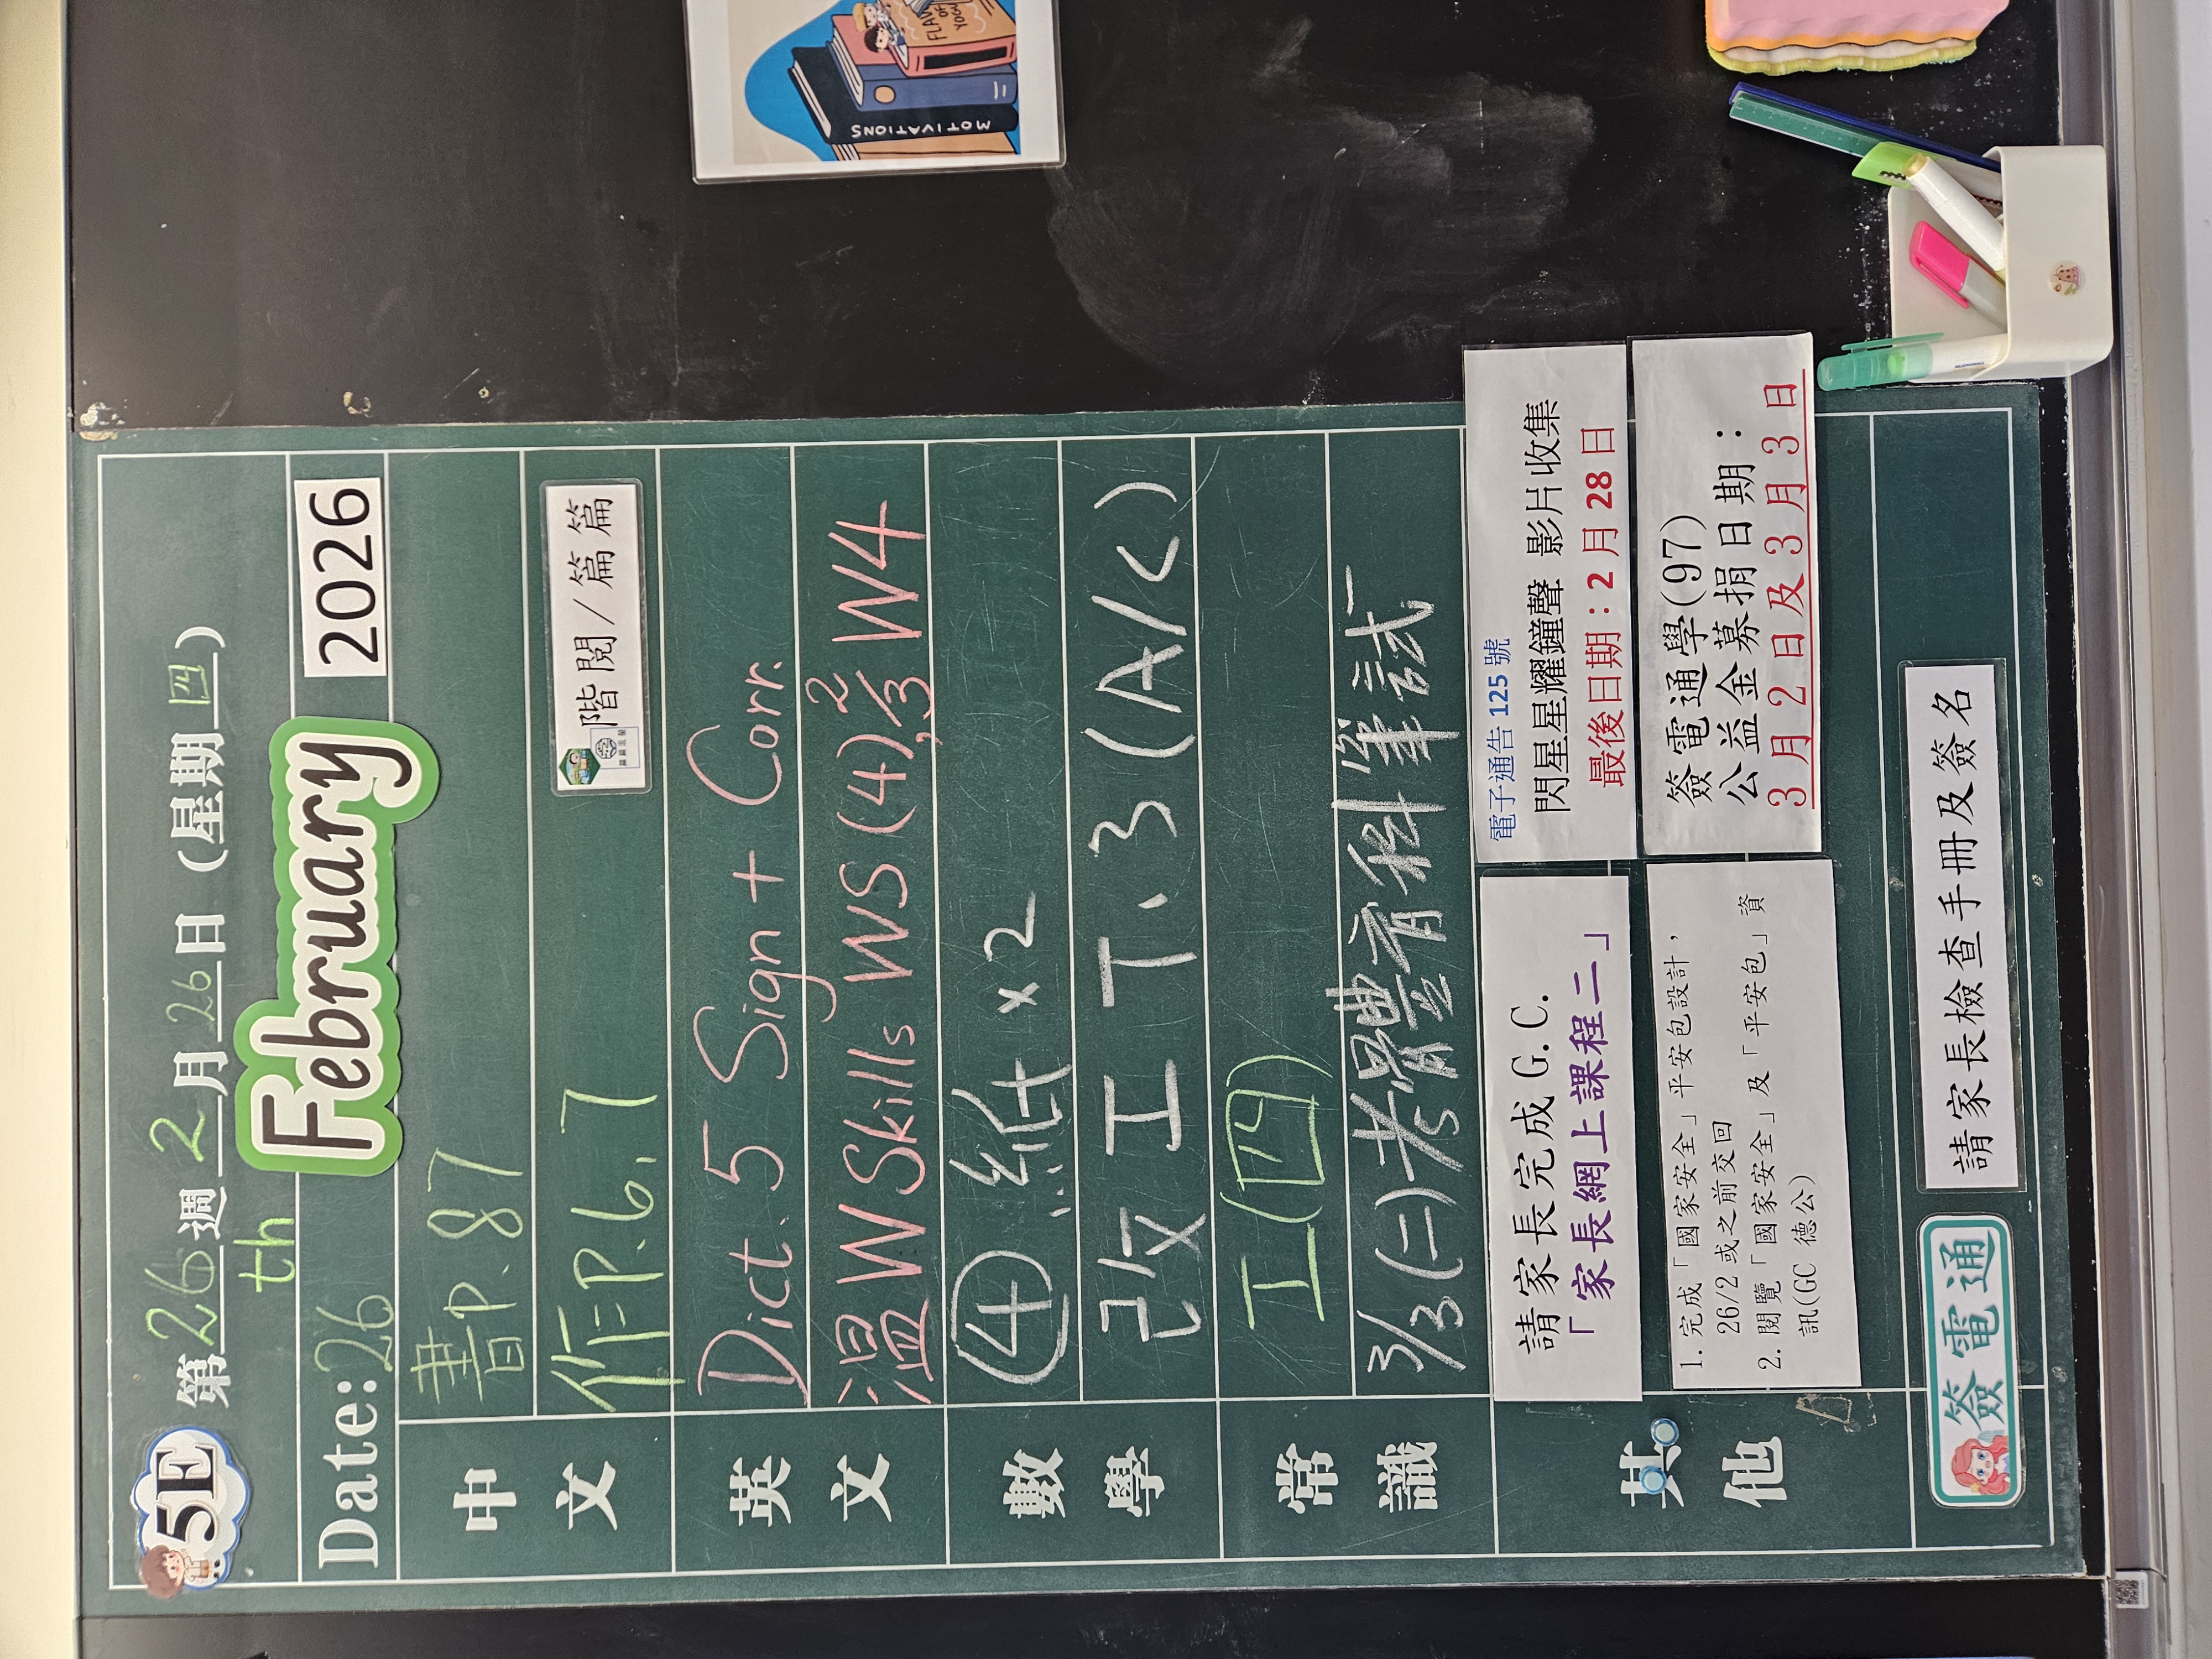 5E 第26週 2月26日(星期四)
Date: 26th February 2026
中文
書P.87
作P.6,7
階閱/篇篇
英文
Dict. 5 Sign + Corr.
溫 W Skills WS (4) 2,3 W4
數學
④ 紙 x2
改工 T.3 (A/C)
常識
工(四)
3/3(二)考體育科筆試
其他
請家長完成 G.C.
「家長網上課程二」
電子通告 125 號
閃星星耀鐘聲 影片收集
最後日期：2 月 28 日
1. 完成「國家安全」平安包設計，
26/2 或之前交回
2. 閱覽「國家安全」及「平安包」資
訊(GC 德公)
簽電通學(97)
公益金募捐日期：
3月2日及3月3日
簽電通
請家長檢查手冊及簽名
MOTIVATIONS